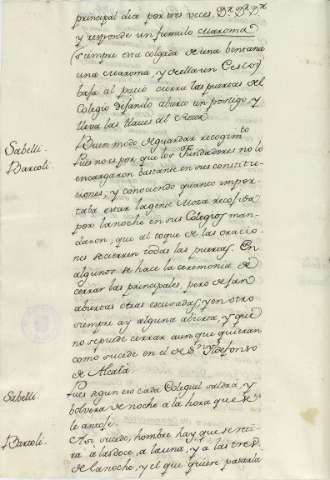 principal dice por tres veces, Dª Dª Dª
y responde un famulo cuaroma
(siempre está colgada de una bentana
una cuaroma, y de ella un Cesto)
baja al patio cierra las puertas del
Colegio dejando abierto un postigo, y
lleva las llaves al Rector
Sabelli. Buen modo de guardar recogimto
Bartoli. Pues no es por que los Fundadores no lo
encargaron bastante en sus constitu-
ciones, y conociendo quanto impor-
taba estar la gente Moza recojida
por la noche en sus Colegios man-
daron, que al toque de las oracio-
nes se cierren todas las puertas. En
algunos se hace la ceremonia de
cerrar las principales, pero dejan
abiertas otras escusadas, y en otro
siempre ay alguna abierta, y que
no se puede cerrar aun que quieran
como sucede en el de Sn Ildefonso
de Alcalá.
Sabelli Pues segun eso cada Colegial saldrá, y
bolverá de noche a la hora que se
le antoje.
Bartoli. Asi sucede, hombre hay que se reti-
ra a las doce, a la una, y a las tres
de la noche, y el que quiere pasarla